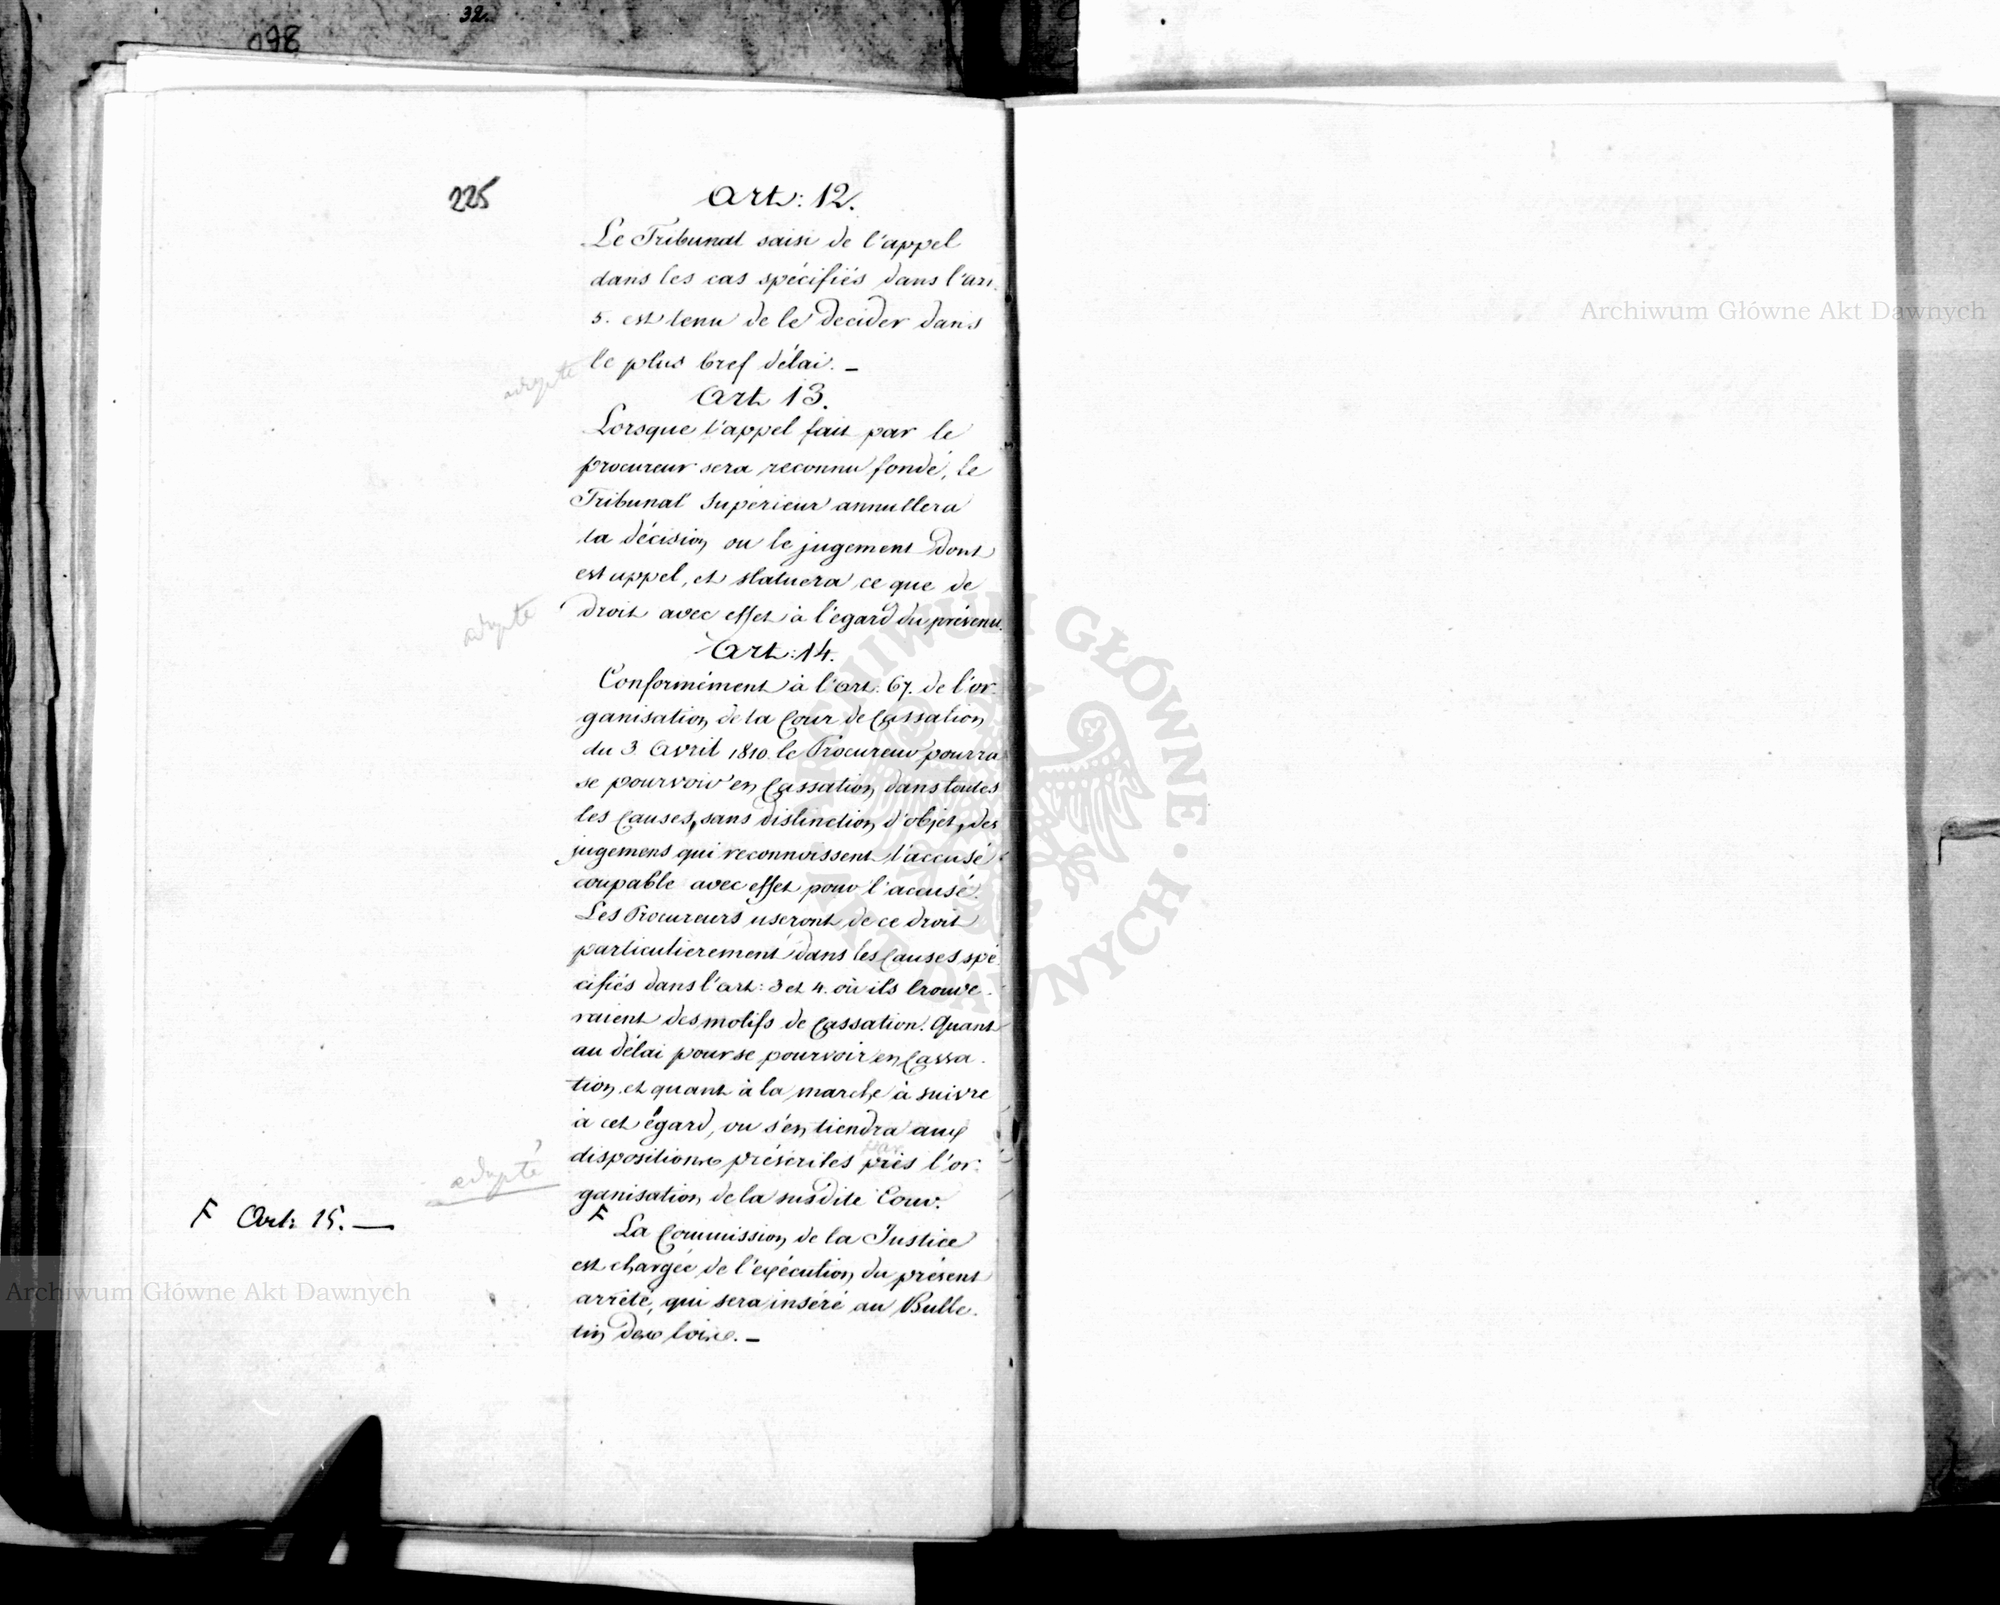 32.
098
225
Art: 12.
Le Tribunal saisi de l'appel
dans les cas spécifiés dans l'art.
5. est tenu de le decider dans
le plus bref délai. –
adopté
Art 13.
Lorsque l'appel fait par le
procureur sera reconnu fondé, le
Tribunal Superieur annullera
la décision ou le jugement dont
est appel, et statuera ce que de
droit avec effet à l'égard du prévenu.
adopté
Art: 14.
Conformément à l'art. 67. de l'or-
ganisation de la Cour de Cassation
du 3 Avril 1810. le Procureur pourra
se pourvoir en Cassation dans toutes
les Causes, sans distinction d'objet, des
jugemens qui reconnoissent l'accusé
coupable avec effet pour l'accusé.
Les Procureurs useront de ce droit
particulierement dans les Causes spé-
cifiés dans l'art: 3 et 4. où ils trouve-
raient des motifs de Cassation. Quant
au délai pour se pourvoir en Cassa-
tion, et quant à la marche à suivre
à cet égard, on s'en tiendra aux
par
dispositions préscrites près l'or-
ganisation de la susdite Cour.
adopté
F Art: 15. —
F
La Commission de la Justice
est chargée de l'exécution du présent
arrêté, qui sera inséré au Bulle-
tin des loix. –
Archiwum Główne Akt Dawnych
Archiwum Główne Akt Dawnych
ARCHIWUM GŁÓWNE · AKT DAWNYCH